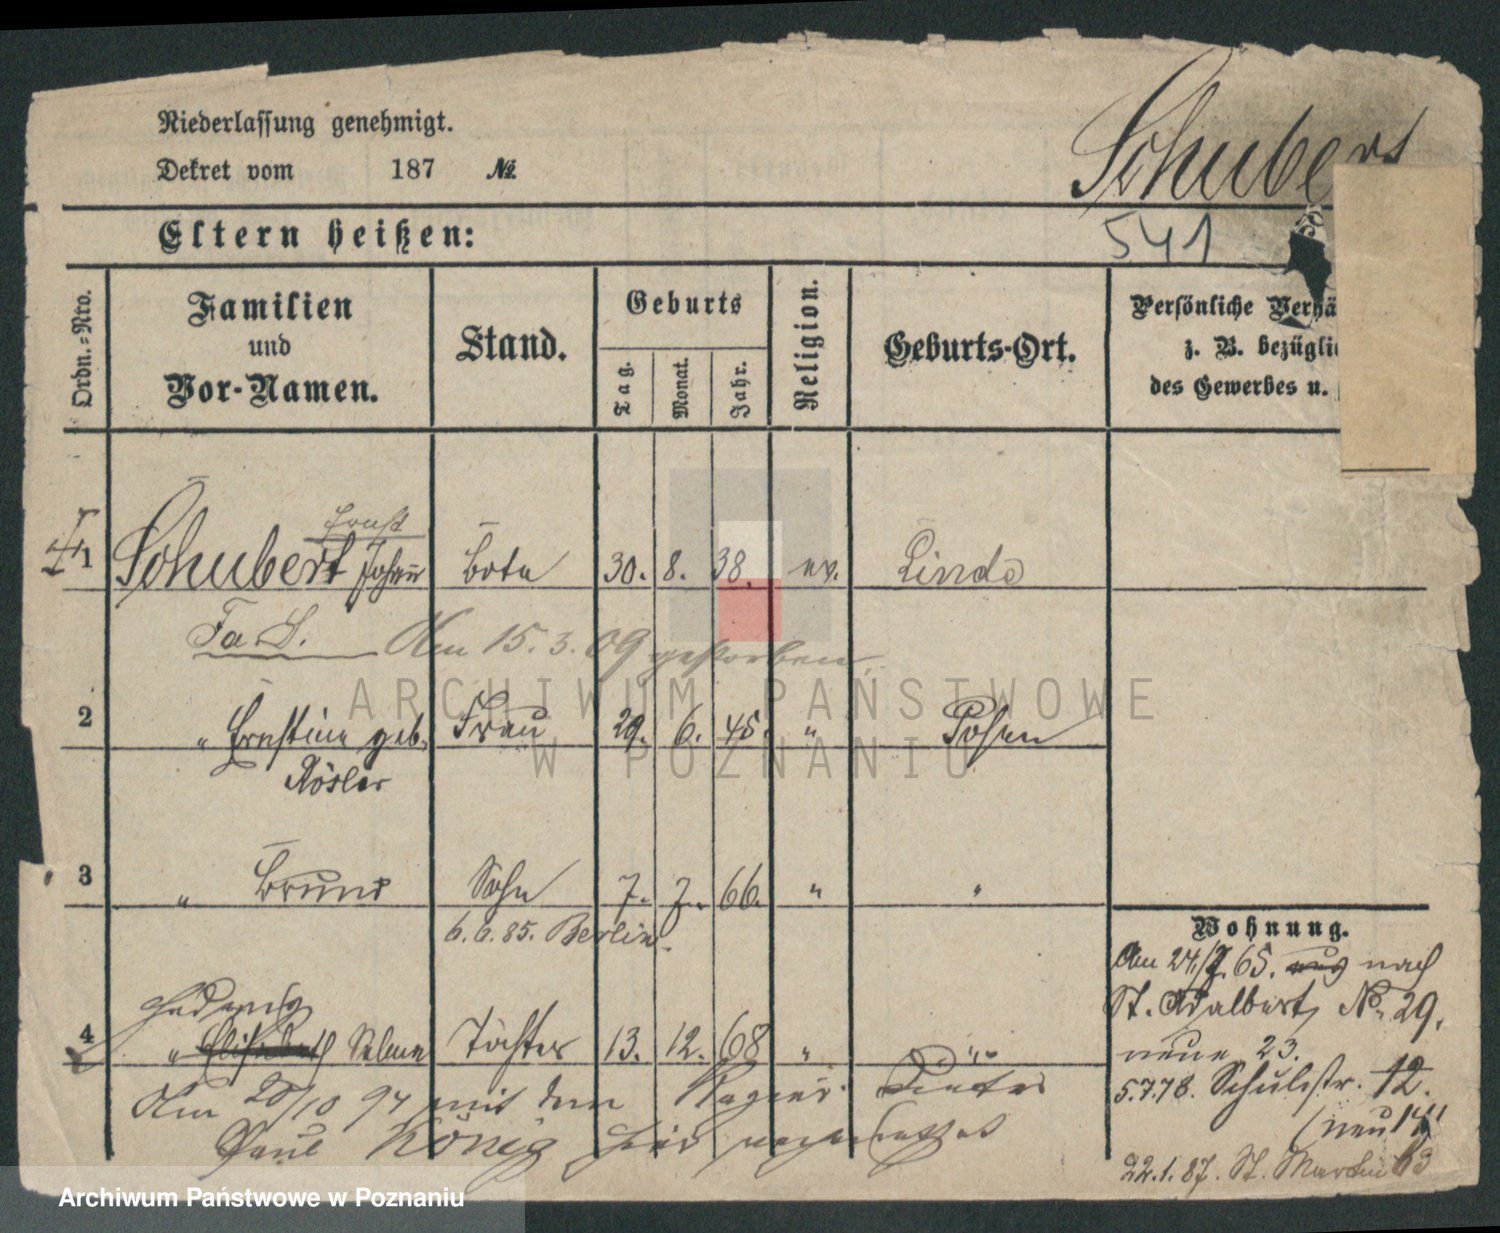 Niederlassung genehmigt.
Dekret vom 187 №
Schubert
Eltern heißen:
541
Ordn.=Nro.
Familien
und
Vor-Namen.
Stand.
Geburts
Tag.
Monat.
Jahr.
Religion.
Geburts-Ort.
Persönliche
z. B.
des Gewerbes u.
Ernst
1 Schubert Johann Bote 30. 8. 38. ev. Linde
Am 15. 3. 09 gestorben
2 " Ernstine geb. Frau 29. 6. 45. " Posen
Rösler
3 " Bruno Sohn 7. 7. 66. " "
6. 6. 85. Berlin.
Hedwig
4 " Selma Tochter 13. 12. 68 " "
Am 20/10 94 mit dem
Paul König hier verheirathet
Wohnung.
Am 24./7. 65. nach
St. Adalbert, No. 29.
neue 23.
5.7.78. Schulstr. 12.
(neu 14)
22.1.87. St. Martin 63
ARCHIWUM PAŃSTWOWE
W POZNANIU
Archiwum Państwowe w Poznaniu